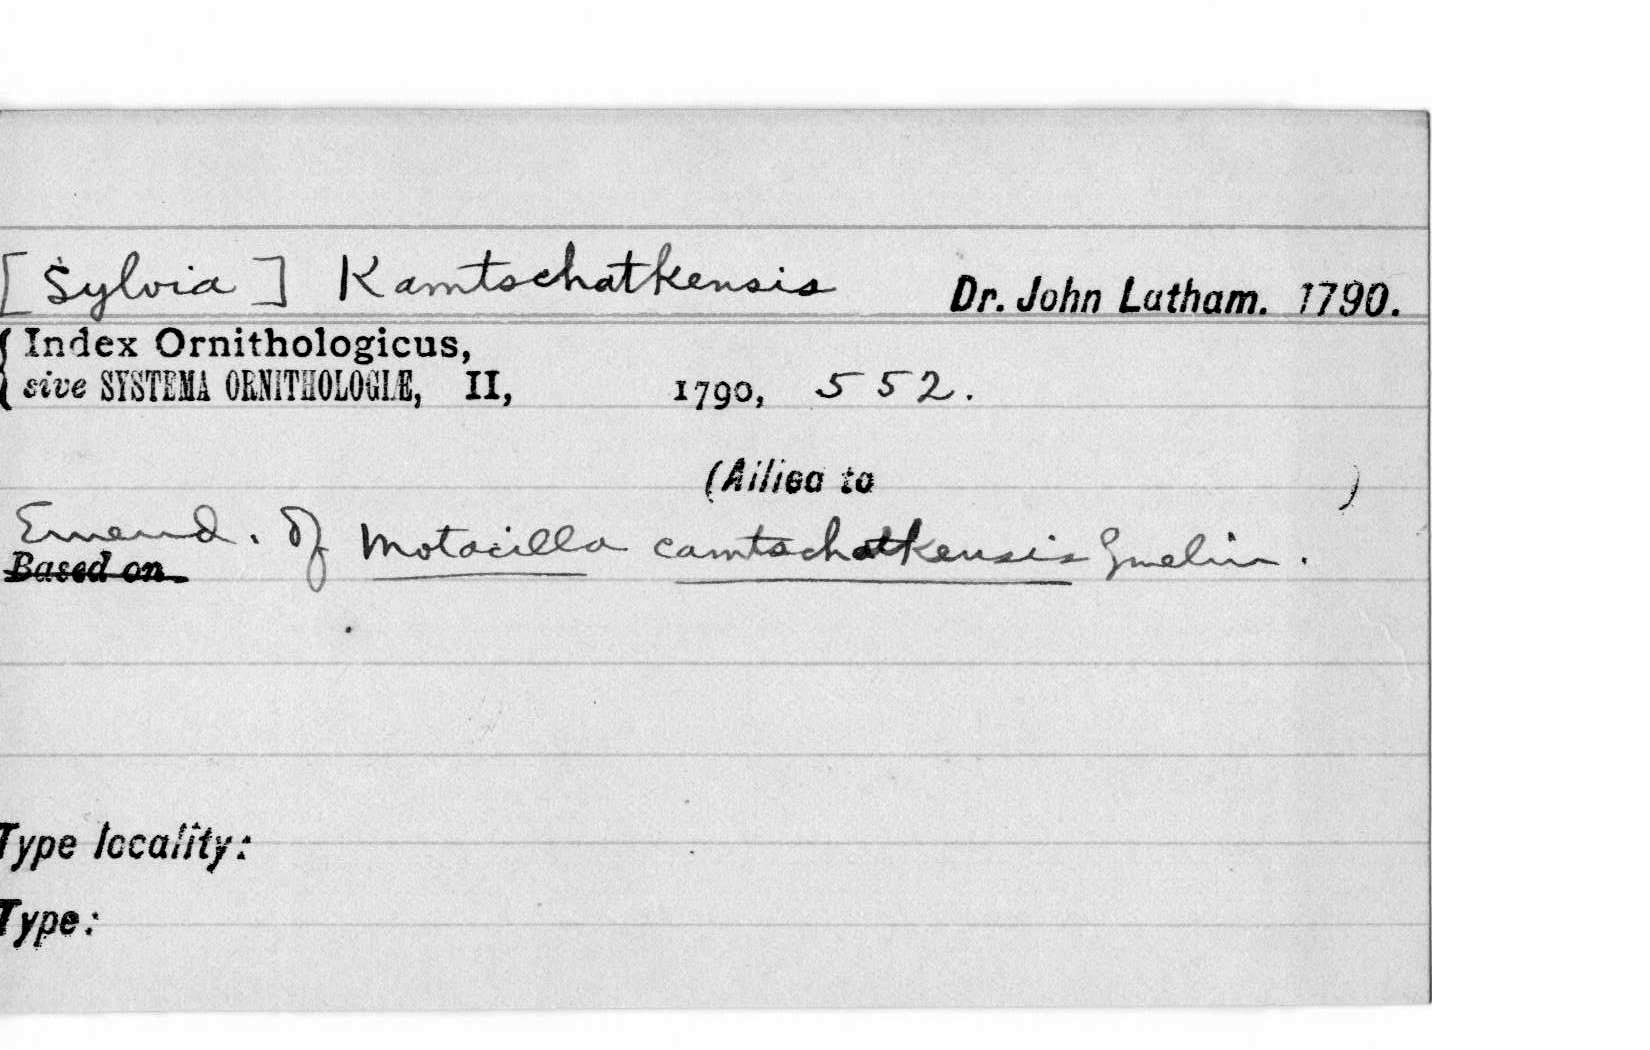 [Sylvia] Kamtschatkensis Dr. John Latham. 1790.
Index Ornithologicus,
sive SYSTEMA ORNITHOLOGIÆ, II, 1790, 552.
(Allied to )
Emend. of Motacilla camtschatkensis Gmelin.
Based on
Type locality:
Type: